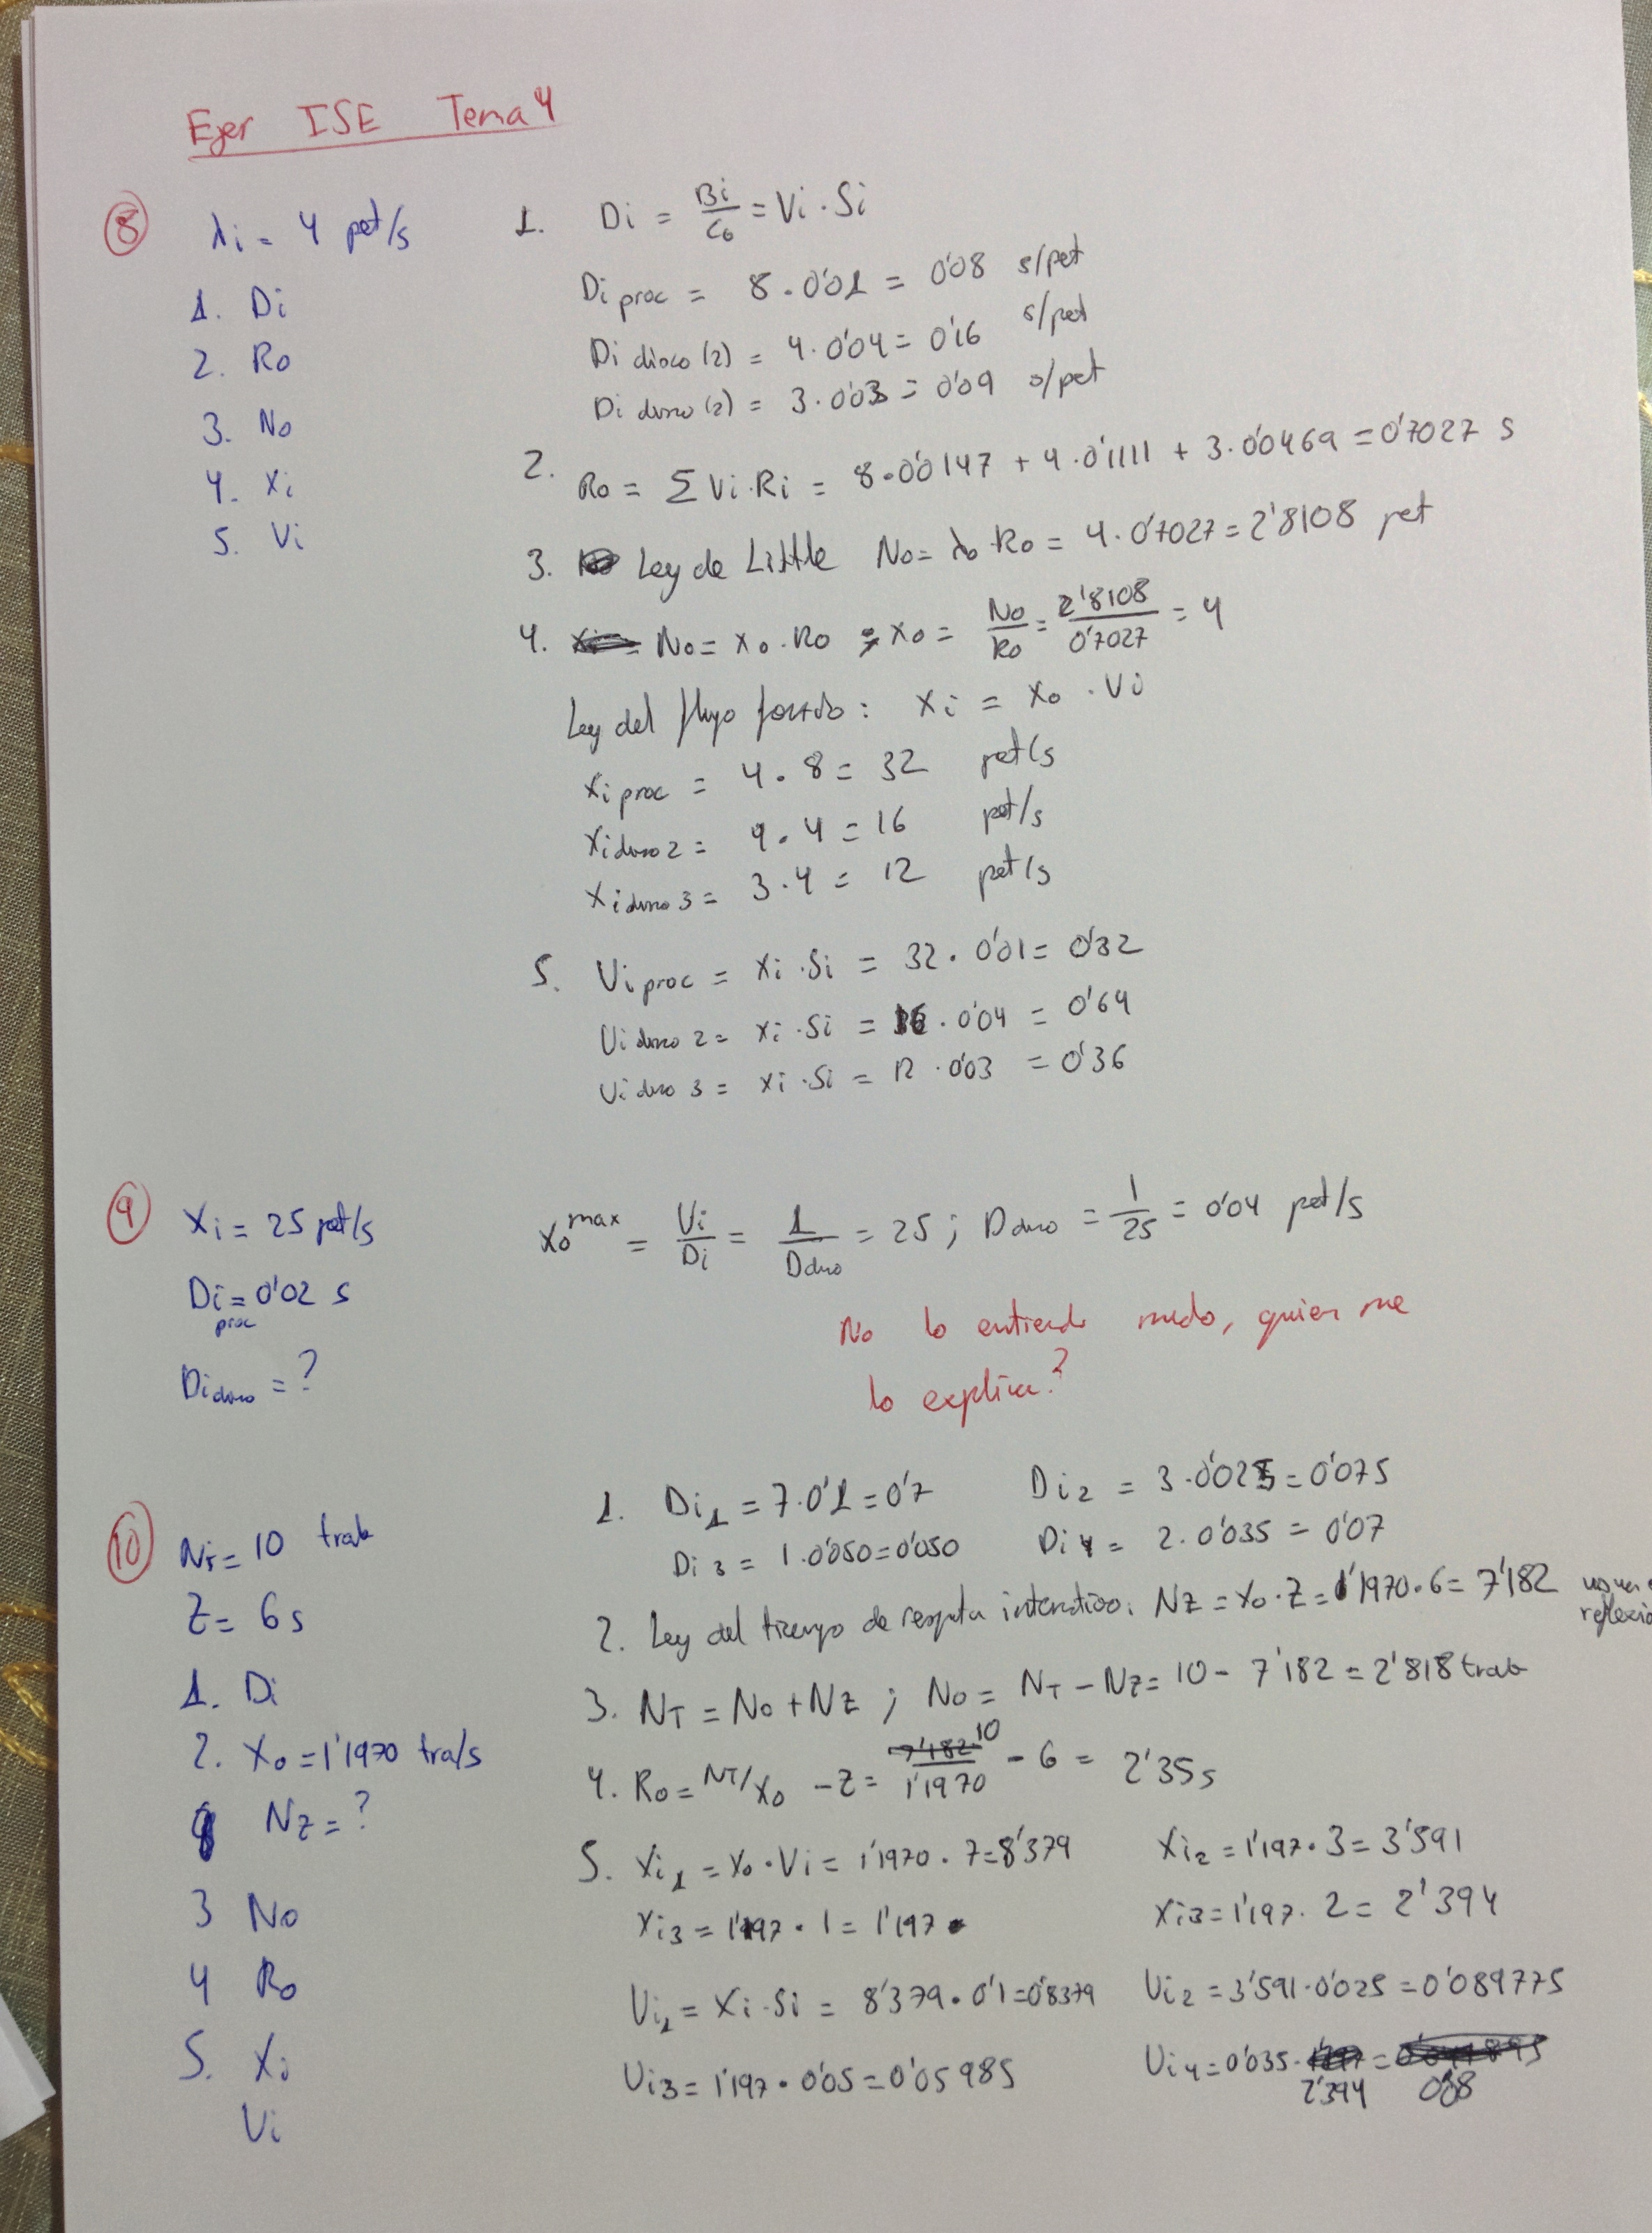 Ejer ISE Tema 4
8
λi = 4 pet/s
1. Di
2. Ro
3. No
4. Xi
5. Ui
1. Di = Bi/Co = Vi · Si
Di proc = 8 · 0'01 = 0'08 s/pet
Di disco (2) = 4 · 0'04 = 0'16 s/pet
Di disco (2) = 3 · 0'03 = 0'09 s/pet
2. Ro = Σ Vi · Ri = 8 · 0'0147 + 4 · 0'1111 + 3 · 0'0469 = 0'7027 s
3. Ley de Little No = λo · Ro = 4 · 0'7027 = 2'8108 pet
4. No = Xo · Ro ; Xo = No/Ro = 2'8108/0'7027 = 4
Ley del flujo forzado : Xi = Xo · Vi
Xi proc = 4 · 8 = 32 pet/s
Xi disco 2 = 4 · 4 = 16 pet/s
Xi disco 3 = 3 · 4 = 12 pet/s
5. Ui proc = Xi · Si = 32 · 0'01 = 0'32
Ui disco 2 = Xi · Si = 16 · 0'04 = 0'64
Ui disco 3 = Xi · Si = 12 · 0'03 = 0'36
9
Xi = 25 pet/s
Di proc = 0'02 s
Di disco = ?
Xo max = Vi/Di = 1/D disco = 25 ; D disco = 1/25 = 0'04 pet/s
No lo entiendo mucho, quien me
lo explica?
10
NT = 10 trab
Z = 6 s
1. Di
2. Xo = 1'1970 tra/s
NZ = ?
3 No
4 Ro
5. Xi
Ui
1. Di1 = 7 · 0'1 = 0'7 Di2 = 3 · 0'025 = 0'075
Di3 = 1 · 0'050 = 0'050 Di4 = 2 · 0'035 = 0'07
2. Ley del tiempo de respuesta interactivo. NZ = Xo · Z = 1'1970 · 6 = 7'182
3. NT = No + NZ ; No = NT - NZ = 10 - 7'182 = 2'818 trab
4. Ro = NT/Xo - Z = 10/1'1970 - 6 = 2'35 s
5. Xi1 = Xo · Vi = 1'1970 · 7 = 8'379 Xi2 = 1'197 · 3 = 3'591
Xi3 = 1'197 · 1 = 1'197 Xi3 = 1'197 · 2 = 2'394
Ui1 = Xi · Si = 8'379 · 0'1 = 0'8379 Ui2 = 3'591 · 0'025 = 0'089775
Ui3 = 1'197 · 0'05 = 0'05985 Ui4 = 0'035 · 2'394 = 0'08